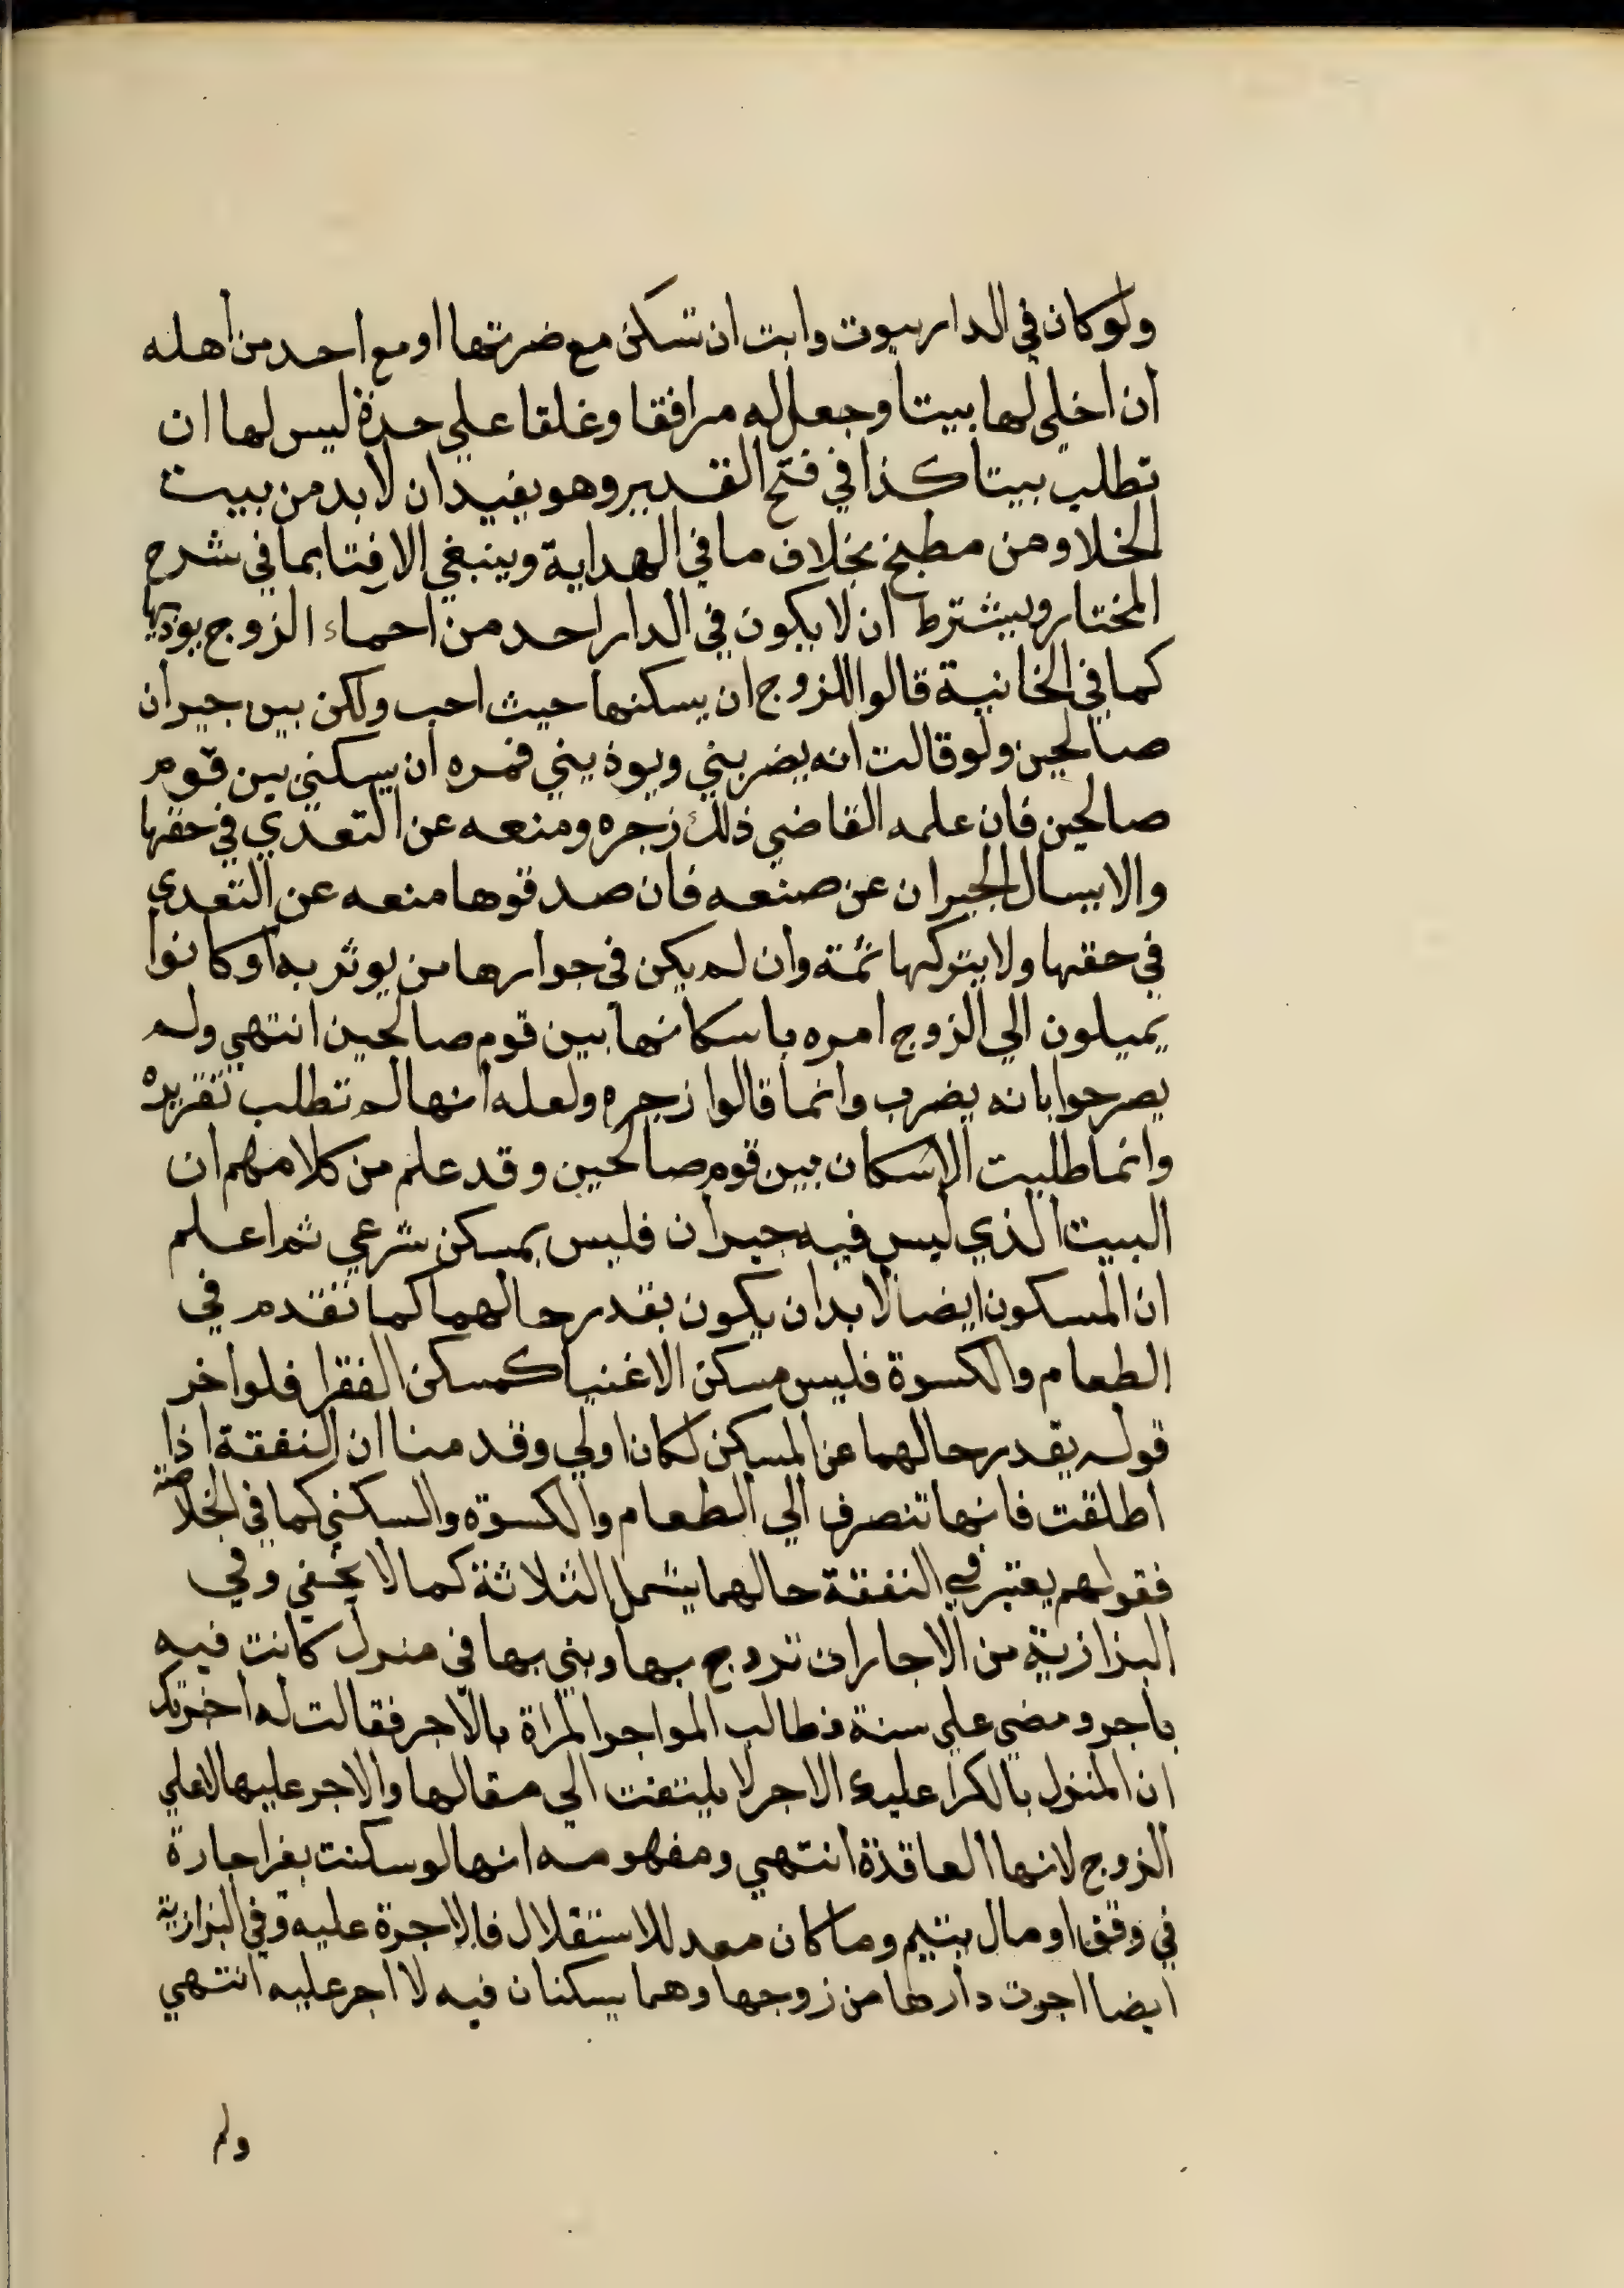 ولو كان في الدار بيوت وابت ان تسكن مع ضرتها او مع احد من اهله
ان اخلي لها بيتا وجعل له مرافقا وغلقا علي حدة ليس لها ان
تطلب بيتا كذا في فتح القدير وهو يفيد ان لابد من بيت
الخلا ومن مطبخ بخلاف ما في الهداية وينبغي الافتا بما في شرح
المختار ويشترط ان لا يكون في الدار احد من احماء الزوج يوذيها
كما في الخانية قالوا للزوج ان يسكنها حيث احب ولكن بين جيران
صالحين ولو قالت انه يضربني ويوذيني فمره ان يسكنني بين قوم
صالحين فان علمه القاضي ذلك زجره ومنعه عن التعدي في حقها
والا يسال الجيران عن صنعه فان صدقوها منعه عن التعدي
في حقها ولا يتركها ثمة وان لم يكن في جوارها من يوثر به او كانوا
يميلون الي الزوج امره باسكانها بين قوم صالحين انتهي ولم
يصرحوا بانه يضرب وانما قالوا زجره ولعله انها لم تطلب تعزيره
وانما طلبت الاسكان بين قوم صالحين وقد علم من كلامهم ان
البيت الذي ليس فيه جيران فليس بمسكن شرعي ثم اعلم
ان المسكون ايضا لابد ان يكون بقدر حالهما كما تقدم في
الطعام والكسوة فليس مسكن الاغنيا كمسكن الفقرا فلو اخر
قوله بقدر حالهما عن المسكن لكان اولي وقدمنا ان النفقة اذا
اطلقت فانها تنصرف الي الطعام والكسوة والسكني كما في الخلاصة
فقولهم يعتبر في النفقة حالهما يشمل الثلاثة كما لا يخفي وفي
البزازية من الاجارات تزوج بها وبني بها في منزل كانت فيه
باجر ومضي علي سنة فطالب المواجر المراة بالاجر فقالت له اخبرتك
ان المنزل بالكرا عليك الاجر لا يلتفت الي مقالها والاجر عليها لا علي
الزوج لانها العاقدة انتهي ومفهومه انها لو سكنت بغير اجارة
في وقف او مال يتيم وما كان معد للاستقلال فالاجرة عليه وفي البزازية
ايضا اجرت دارها من زوجها وهما يسكنان فيه لا اجر عليه انتهي
ولم